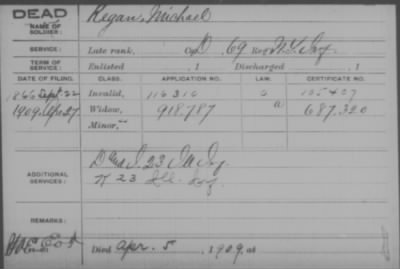 DEAD
NAME OF SOLDIER: Regan, Michael
SERVICE: Late rank, Co. D, 69 Reg't N.Y. Inf
TERM OF SERVICE: Enlisted , 1 Discharged , 1
DATE OF FILING. CLASS. APPLICATION NO. LAW. CERTIFICATE NO.
1866 Sept. 22 Invalid, 116310
1909 Apr 27 Widow, 918.787 687.320
Minor,
ADDITIONAL SERVICES: D and I. 23 Ill Inf.
K 23 Ill. Inf.
REMARKS:
Died Apr. 5, 1909, at